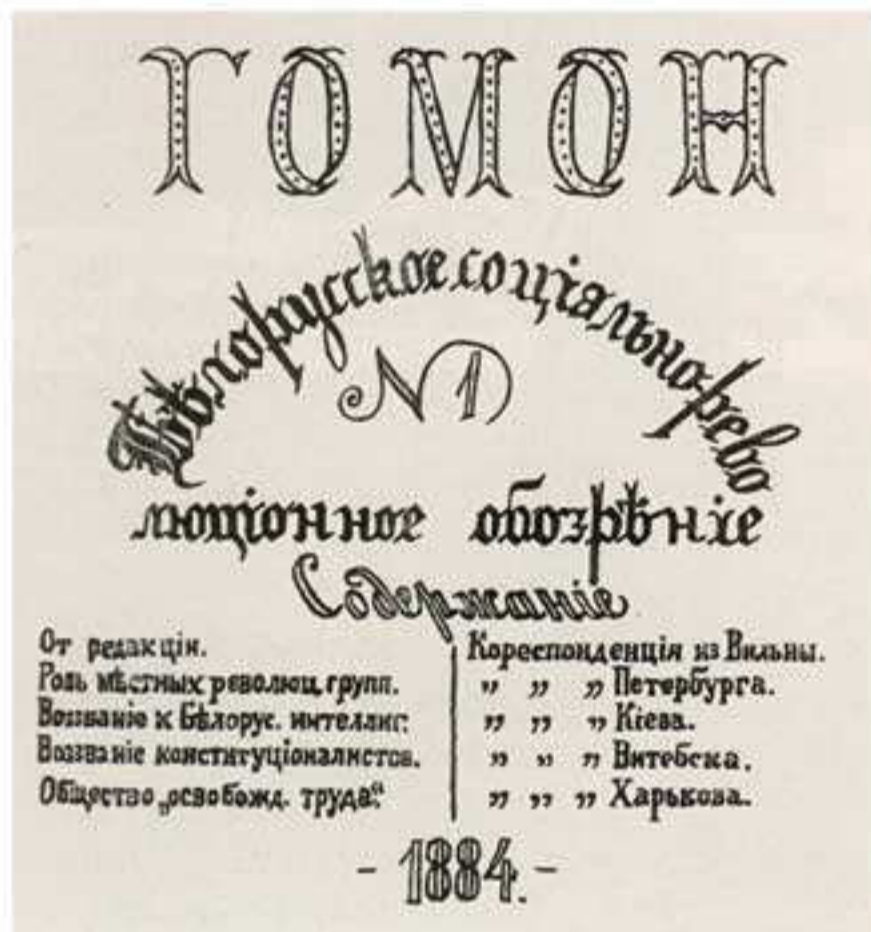 ГОМОН
Бѣлорусское соціяльно-рево
№ 1
люціонное обозрѣніе
Содержаніе
От редакціи.
Роль мѣстных революц. групп.
Воззваніе к Бѣлорус. интеллиг.
Воззваніе конституціоналистов.
Общество „освобожд. труда“.
Кореспонденція из Вильны.
„ „ „ Петербурга.
„ „ „ Кіева.
„ „ „ Витебска.
„ „ „ Харькова.
- 1884. -